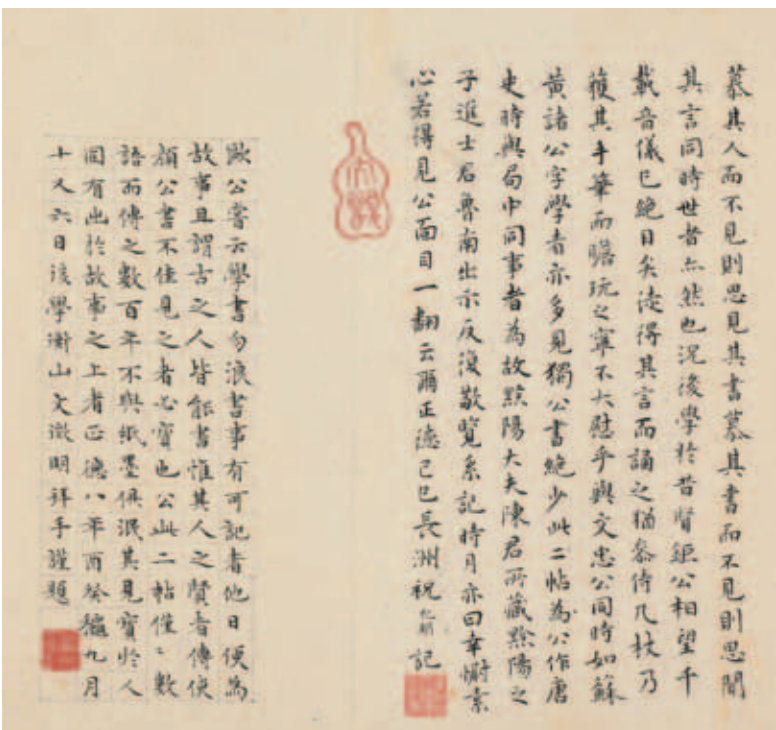 慕其人而不見則思見其書慕其書而不見則思聞
其言同時世者亦然也況後學於昔賢鉅公相望千
載音儀已絕目矣徒得其言而誦之猶忝侍几杖乃
獲其手筆而瞻玩之寧不大慰乎與文忠公同時如蘇
黃諸公字學者亦多見獨公書絕少此二帖為公作唐
史時與局中同事者為故黟陽大夫陳君所藏黟陽之
子進士君魯南出示反復敬覽系記時月亦曰幸慰素
心若得見公面目一翻云爾正德己巳長洲祝允明記
歐公嘗云學書勿浪書事有可記者他日便為
故事且謂古之人皆能書惟其人之賢者傳使
顏公書不佳見之者必寶也公此二帖僅僅數
語而傳之數百年不與紙墨俱泯其見寶於人
固有出於故事之上者正德八年酉癸穐九月
十又六日後學衡山文徵明拜手謹題